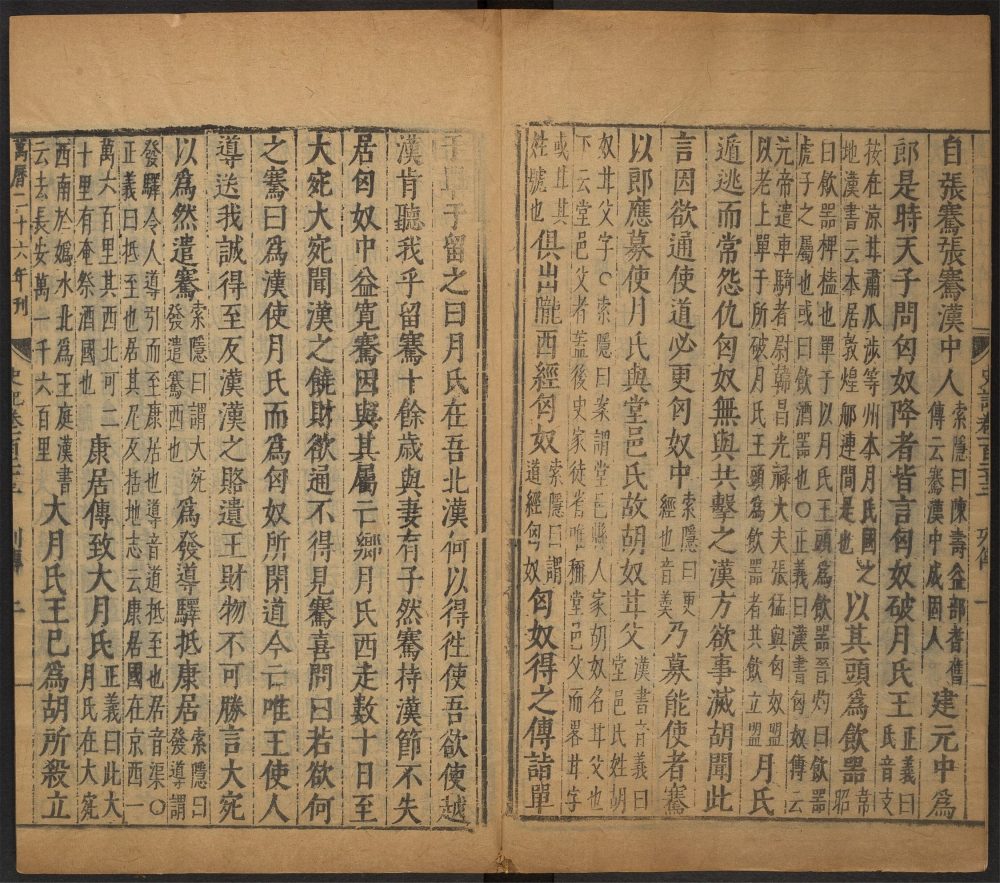 史記卷一百二十三 列傳 一
自張騫張騫漢中人
索隱曰陳壽益部耆舊
傳云騫漢中成固人
建元中為
郎是時天子問匈奴降者皆言匈奴破月氏王
正義曰
氏音支
按在涼甘肅瓜沙等州本月氏國之
地漢書云本居敦煌祁連間是也
以其頭為飲器
韋昭
曰飲器椑榼也單于以月氏王頭為飲器晉灼曰飲器
虎子之屬也或曰飲酒器也○正義曰漢書匈奴傳云
元帝遣車騎都尉韓昌光祿大夫張猛與匈奴盟
以老上單于所破月氏王頭為飲器者共飲血盟
月氏
遁逃而常怨仇匈奴無與共擊之漢方欲事滅胡聞此
言因欲通使道必更匈奴中
索隱曰更
經也音羹
乃募能使者騫
以郎應募使月氏與堂邑氏故胡奴甘父
漢書音義曰
堂邑氏姓胡
奴甘父字○索隱曰案謂堂邑縣人家胡奴名甘父也
下云堂邑父者蓋後史家從省唯稱堂邑父而略甘字
或甘其
姓號也
俱出隴西經匈奴
索隱曰謂
道經匈奴
匈奴得之傳詣單
于單于留之曰月氏在吾北漢何以得徃使吾欲使越
漢肯聽我乎留騫十餘歲與妻有子然騫持漢節不失
居匈奴中益寬騫因與其屬亡鄉月氏西走數十日至
大宛大宛聞漢之饒財欲通不得見騫喜問曰若欲何
之騫曰為漢使月氏而為匈奴所閉道今亡唯王使人
導送我誠得至反漢漢之賂遺王財物不可勝言大宛
以為然遣騫
索隱曰謂大宛
發遣騫西也
為發導驛抵康居
索隱曰
發導謂
發驛令人導引而至康居也導音道抵至也居音渠○
正義曰抵至也居其尼反括地志云康居國在京西一
萬六百里其西北可二
十里有奄祭酒國也
康居傳致大月氏
正義曰此大
月氏在大宛
西南於媯水北為王庭漢書
云去長安萬一千六百里
大月氏王已為胡所殺立
萬曆二十六年刊 史記卷一百二十三 列傳